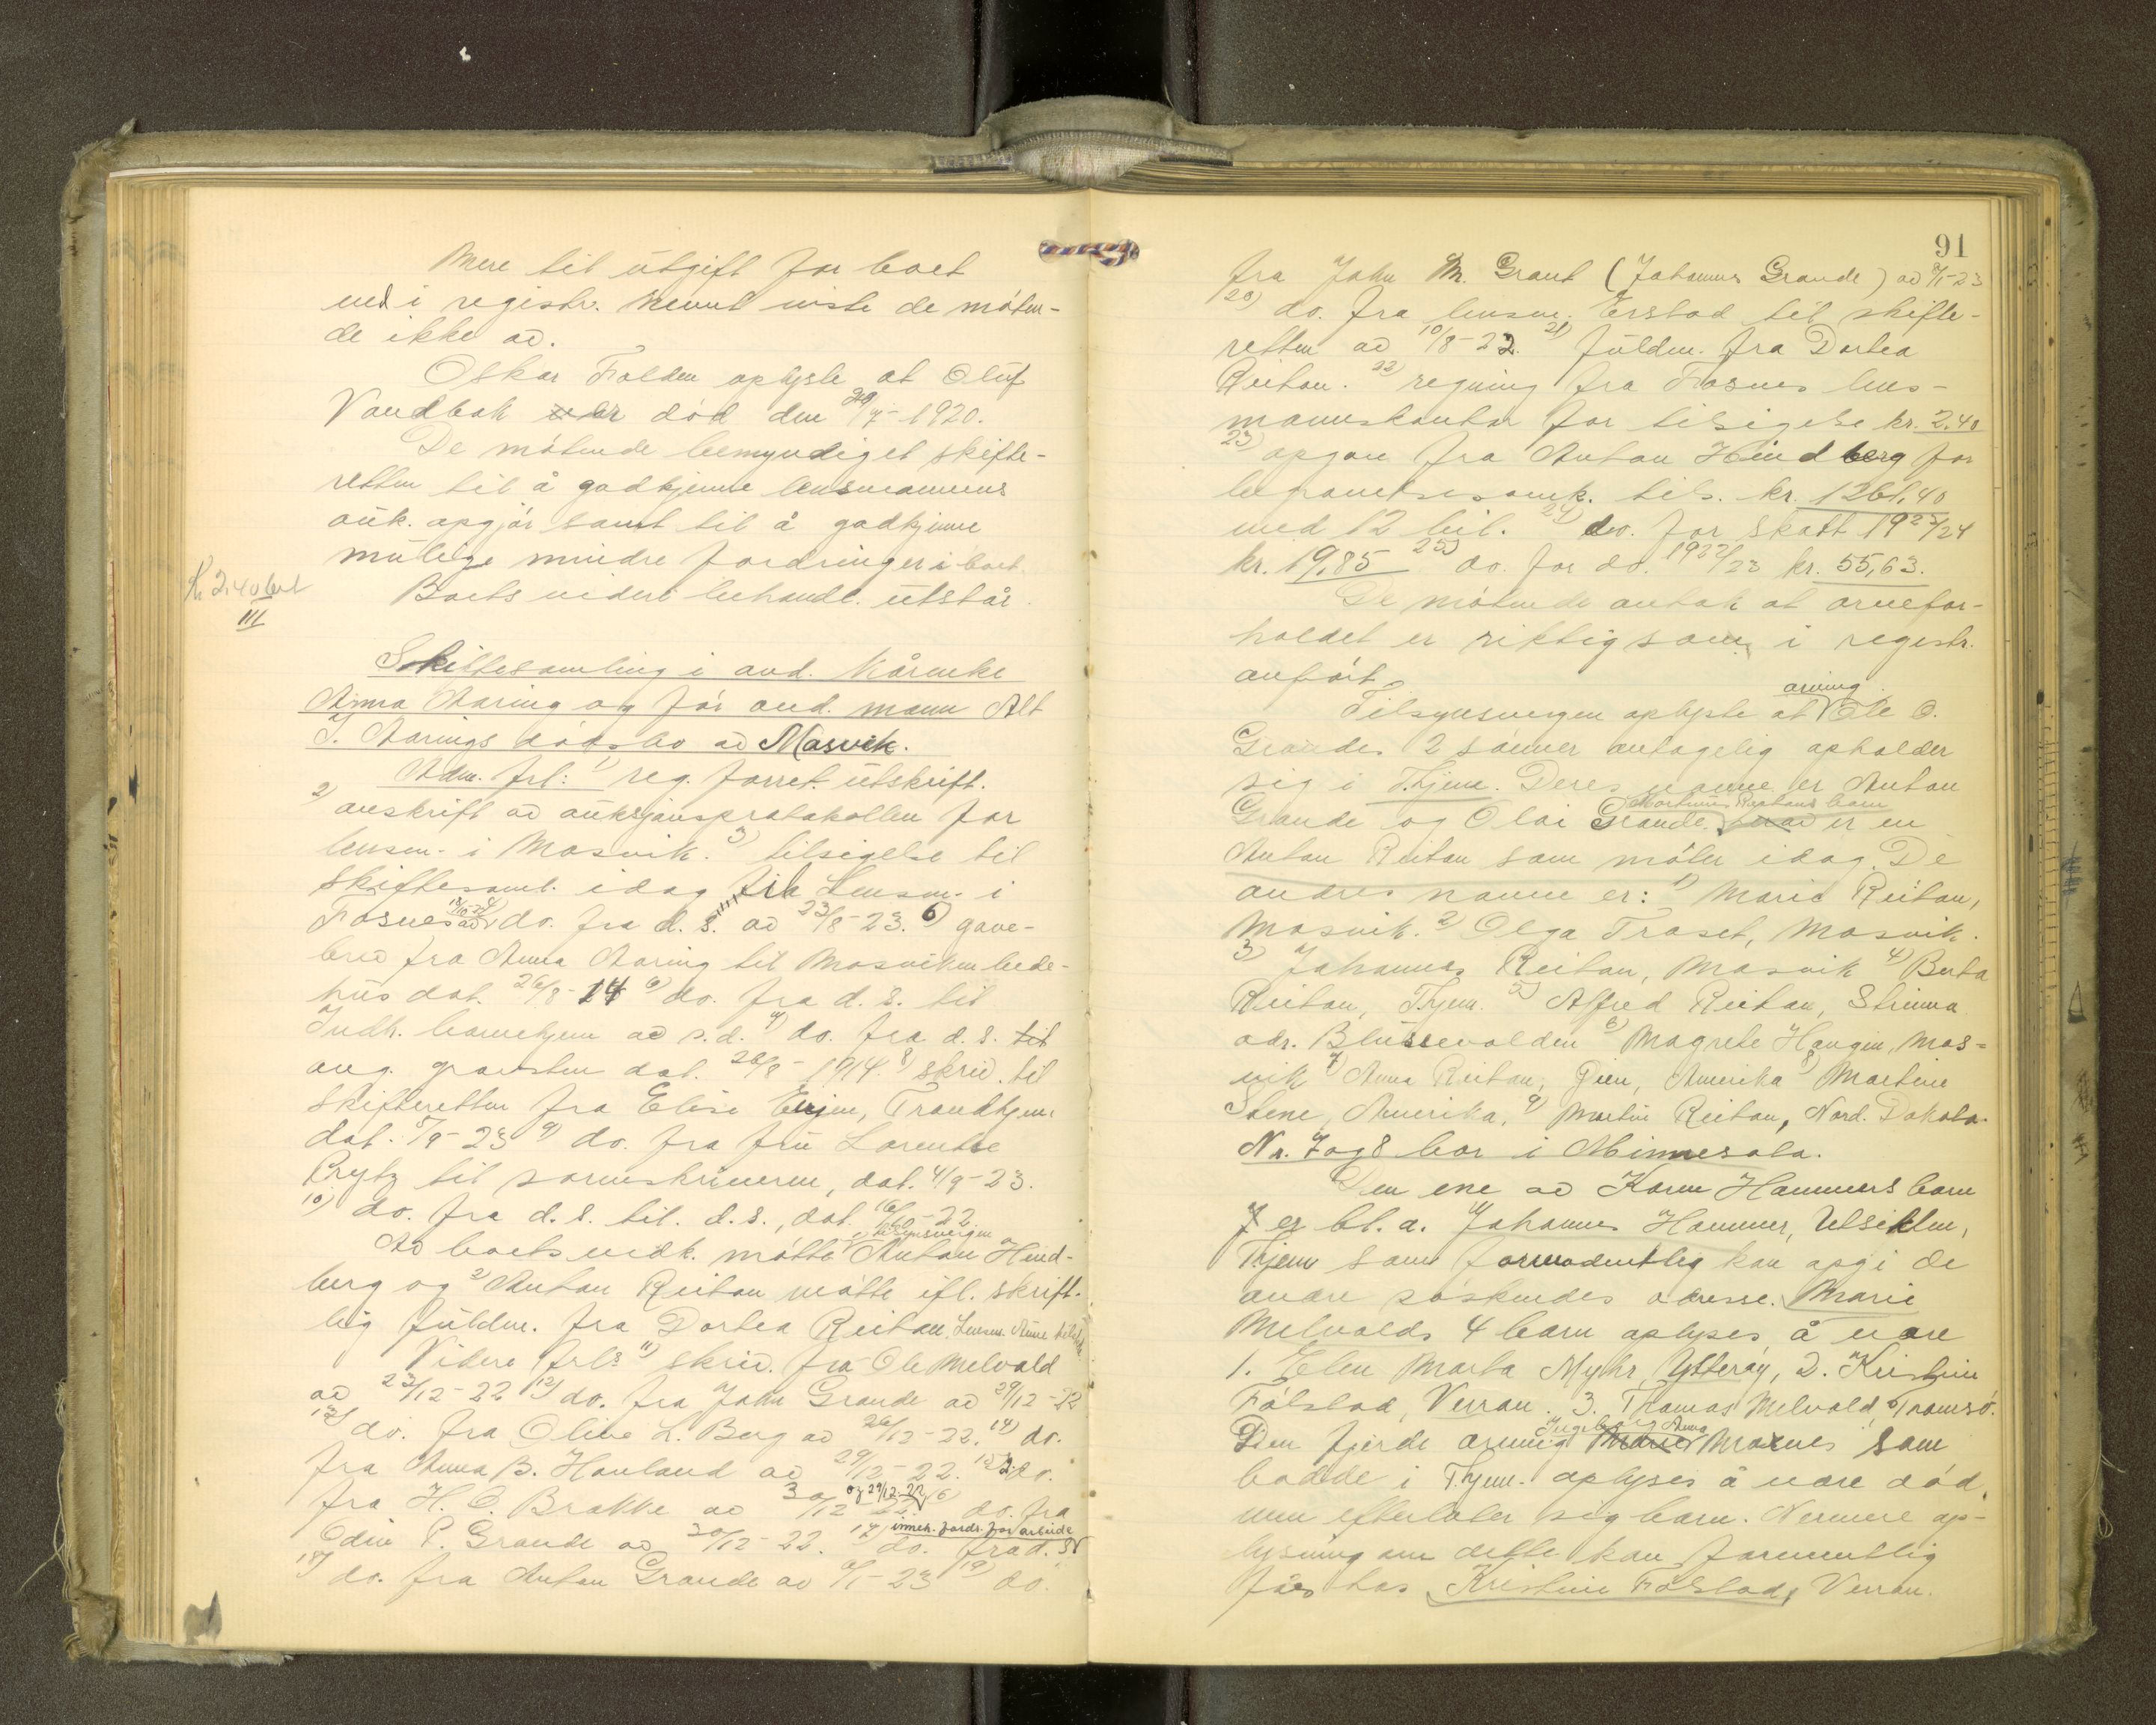 Mere til utgift for boet
end i registr. nevnt viste de møten-
de ikke av.
Oskar Folden oplyste at Oluf
Vandbak er død den 29/4-1920.
De møtende bemyndiget skifte-
retten til å godkjenne lensmannens
auk. opgjør samt til å godkjenne
mulige mindre fordringer i boet.
Kr 2.40 bet
III
Boets videre behandl. utstår.
Skiftesamling i avd. kårenke
Anna Aaring og før avd. mann Alt
J. Aarings dødsbo av Mosvik.
Adm. frl: 1) reg. forret. utskrift.
2) avskrift av auksjonsprotokollen for
lensm. i Mosvik. 3) tilsigelse til
skiftesaml. idag fra Lensm. i
Fosnes av 18/10-23 4) do. fra d. s. av 23/8-23. 5) gave-
brev fra Anna Aaring til Mosviken bede-
hus dat. 26/8-14 6) do. fra d. s. til
Indh. barnehjem av s.d. 7) do. fra d. s. til
ang. gravsten dat. 26/8-1914. 8) skriv. til
skifteretten fra Elise Eujen, Trondhjem
dat. 5/9-23 9) do. fra fru Lorentse
Prytz til sorenskriveren, dat. 4/9-23.
10) do. fra d. s. til. d. s., dat. 16/10-22
Av boets vedk. møtte 1) tilsynsvergen Anton Hind-
berg og 2) Anton Reitan møtte ifl. skrift-
lig fuldm. fra Dortea Reitan. Lensm. Aune
Videre frls 11) skriv. fra Ole Melvold
av 23/12-22 12) do. fra John Grande av 29/12-22
13) do. fra Oline L. Berg av 26/12-22. 14) do.
fra Anna B. Hovland av 29/12-22. 15) do.
fra H. O. Brokke av 30/12 og 29/12-22 16) do. fra
Odin P. Grande av 30/12-22. 17) do. fra d. s. inneh. fordr. for arbeide
18) do. fra Anton Grande av 6/1-23 19) do.
91
fra John M. Grant (Johannes Grande) av 8/1-23
20) do. fra lensm. Erstad til skifte-
retten av 10/8-22. 21) fuldm. fra Dortea
Reitan. 22) regning fra Fosnes lens-
mannskontor for tilsigelse kr. 2.40
23) opgav fra Anton Hindberg for
begravelsesomk. tils. kr. 1261,40
med 12 bil. 24) do. for skatt 1923/24
kr. 19,85 25) do. for do. 1922/23 kr. 55,63.
De møtende antok at arvefor-
holdet er riktig som i registr.
anført.
Tilsynsvergen oplyste at arving Ole O.
Grandes 2 sønner antagelig opholder
sig i Thjem. Deres navne er Anton
Grande og Olai Grande. Martinus Reitans barn er en
Anton Reitan som møter idag. De
andres navne er: 1) Marie Reitan,
Mosvik. 2) Olga Traset, Mosvik.
3) Johannes Reitan, Mosvik 4) Berta
Reitan, Thjem. 5) Alfred Reitan, Strinna
adr. Blussevolden 6) Magrete Haugen, Mos-
vik 7) Anna Reitan, Amerika 8) Martine
Stene, Amerika, 9) Martin Reitan, Nord. Dakota.
Nr. 7 og 8 bor i Minnesota.
Den ene av Karen Hammers barn
er bl. a. Johannes Hammer, Utsikten,
Thjem som formodentlig kan opgi de
andre søskendes adresse. Marie
Melvolds 4 barn oplyses å være
1. Elen Marta Myhr, Ytterøy, 2. Kristine
Følstad, Verran. 3. Thomas Melvold, Tromsø.
Den fjerde arving Ingeborg Anna Moxnes som
bodde i Thjem. oplyses å være død,
men efterlater sig barn. Nermere op-
lysning om dette kan formentlig
fåes hos Kristine Følstad, Verran.